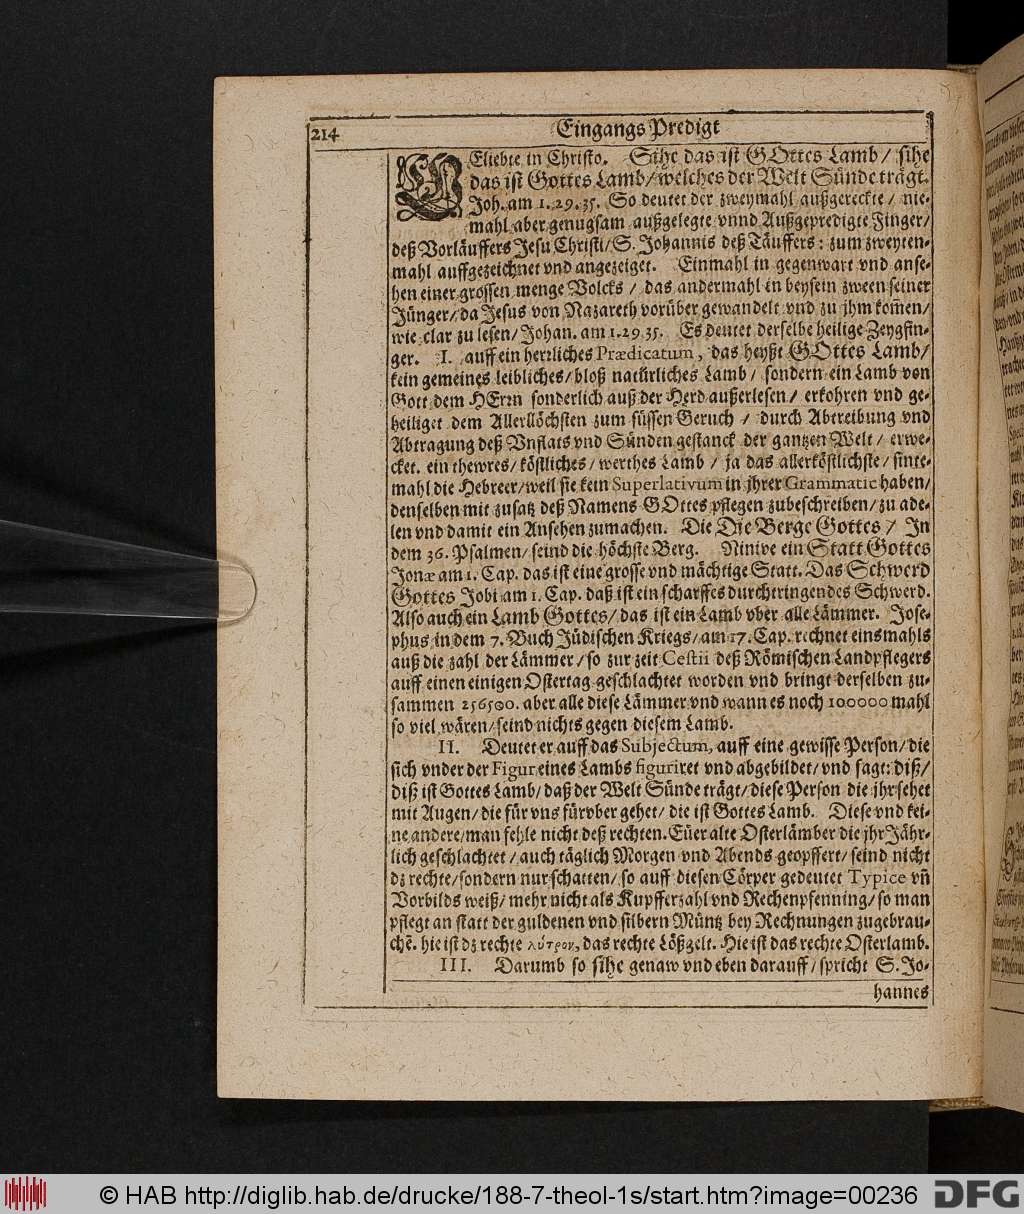 214
Eingangs Predigt
GEliebte in Christo. Sihe das ist GOttes Lamb/ sihe
das ist Gottes Lamb/ welches der Welt Sünde trägt.
Joh. am 1. 29. 35. So deutet der zweymahl außgereckte/ nie-
mahl aber genugsam außgelegte vnnd Außgepredigte Finger/
deß Vorläuffers Jesu Christi/ S. Johannis deß Täuffers: zum zweyten-
mahl auffgezeichnet vnd angezeiget. Einmahl in gegenwart vnd anse-
hen einer grossen menge Volcks/ das andermahl in beysein zween seiner
Jünger/ da Jesus von Nazareth vorüber gewandelt vnd zu jhm kom̃en/
wie clar zu lesen/ Johan. am 1. 29. 35. Es deutet derselbe heilige Zeygfin-
ger. I. auff ein herrliches Prædicatum, das heyßt GOttes Lamb/
kein gemeines leibliches/ bloß natürliches Lamb/ sondern ein Lamb von
Gott dem HErrn sonderlich auß der Herd außerlesen/ erkohren vnd ge-
heiliget dem Allerllöchsten zum süssen Geruch/ durch Abtreibung vnd
Abtragung deß Vnflats vnd Sünden gestanck der gantzen Welt/ erwe-
cket. ein thewres/ köstliches/ werthes Lamb/ ja das allerköstlichste/ sinte-
mahl die Hebreer/ weil sie kein Superlativum in jhrer Grammatic haben/
denselben mit zusatz deß Namens GOttes pflegen zubeschreiben/ zu ade-
len vnd damit ein Ansehen zumachen. Die Die Berge Gottes/ In
dem 36. Psalmen/ seind die höchste Berg. Ninive ein Statt Gottes
Jonæ am 1. Cap. das ist eine grosse vnd mächtige Statt. Das Schwerd
Gottes Jobi am 1. Cap. daß ist ein scharffes durchtringendes Schwerd.
Also auch ein Lamb Gottes/ das ist ein Lamb vber alle Lämmer. Jose-
phus in dem 7. Buch Jüdischen Kriegs/ am 17. Cap. rechnet einsmahls
auß die zahl der Lämmer/ so zur zeit Cestii deß Römischen Landpflegers
auff einen einigen Ostertag geschlachtet worden vnd bringt derselben zu-
sammen 256500. aber alle diese Lämmer vnd wann es noch 100000 mahl
so viel wären/ seind nichts gegen diesem Lamb.
II. Deutet er auff das Subjectum, auff eine gewisse Person/ die
sich vnder der Figur eines Lambs figuriret vnd abgebildet/ vnd sagt: diß/
diß ist Gottes Lamb/ daß der Welt Sünde trägt/ diese Person die jhr sehet
mit Augen/ die für vns fürvber gehet/ die ist Gottes Lamb. Diese vnd kei-
ne andere/ man fehle nicht deß rechten. Eüer alte Osterlämber die jhr Jähr-
lich geschlachtet/ auch täglich Morgen vnd Abends geopffert/ seind nicht
dz rechte/ sondern nur schatten/ so auff diesen Cörper gedeutet Typice vn̄
Vorbilds weiß/ mehr nicht als Kupfferzahl vnd Rechenpfenning/ so man
pflegt an statt der guldenen vnd silbern Müntz bey Rechnungen zugebrau-
chẽ. hie ist dz rechte λύτρον, das rechte Lößgelt. Hie ist das rechte Osterlamb.
III. Darumb so sihe genaw vnd eben darauff/ spricht S. Jo-
hannes
© HAB http://diglib.hab.de/drucke/188-7-theol-1s/start.htm?image=00236
DFG